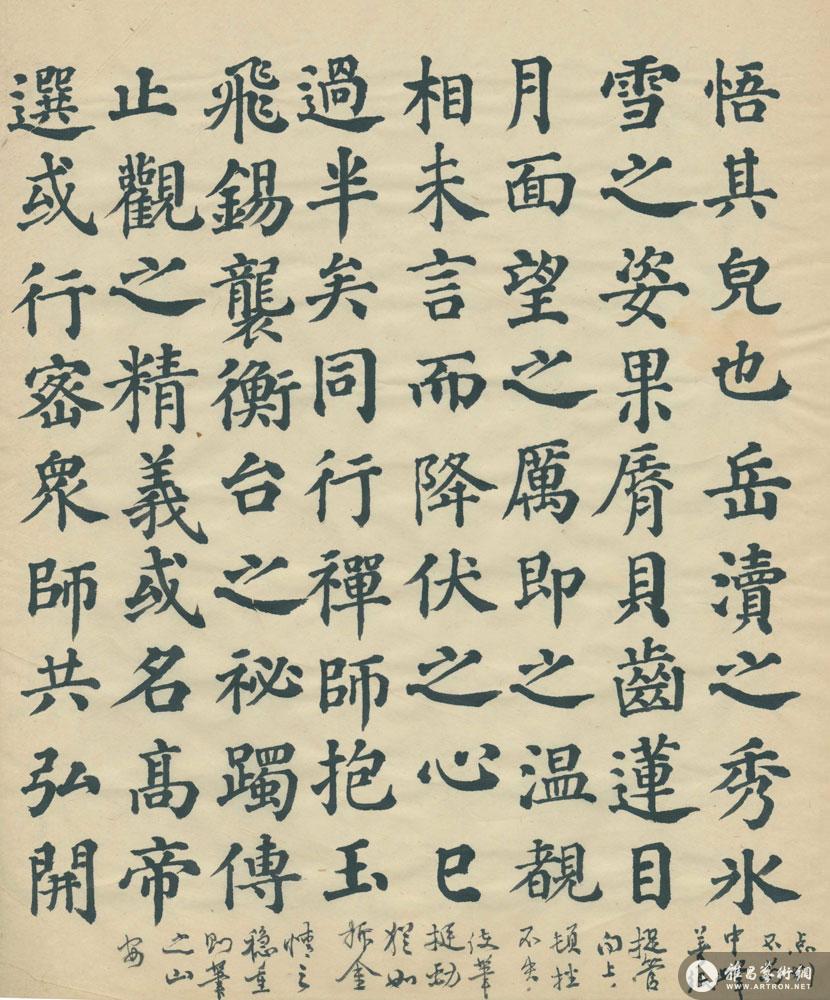 悟其皃也岳瀆之秀氷
雪之姿果脣貝齒蓮目
月面望之厲即之温覩
相未言而降伏之心已
過半矣同行禪師抱玉
飛錫襲衡台之祕躅傳
止觀之精義或名高帝
選或行密衆師共弘開
提管
向上
頓挫
不失
使筆
挺勁
猶如
折金
情之
穩重
則筆
之山
安
雅昌藝術網
WWW.ARTRON.NET